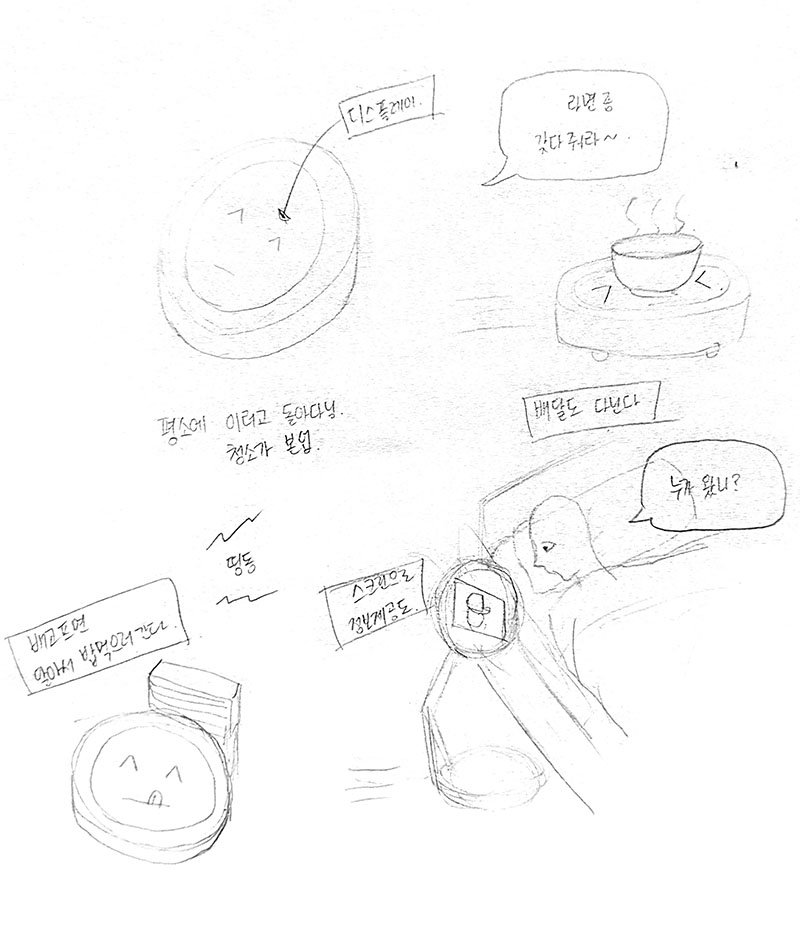 디스플레이.
라면 좀
갖다 줘라~.
평소에 이러고 돌아다님.
청소가 본업.
배달도 다닌다
누가 왔니?
띵동
스크린으로
정보제공도.
배고프면
알아서 밥먹으러 간다.